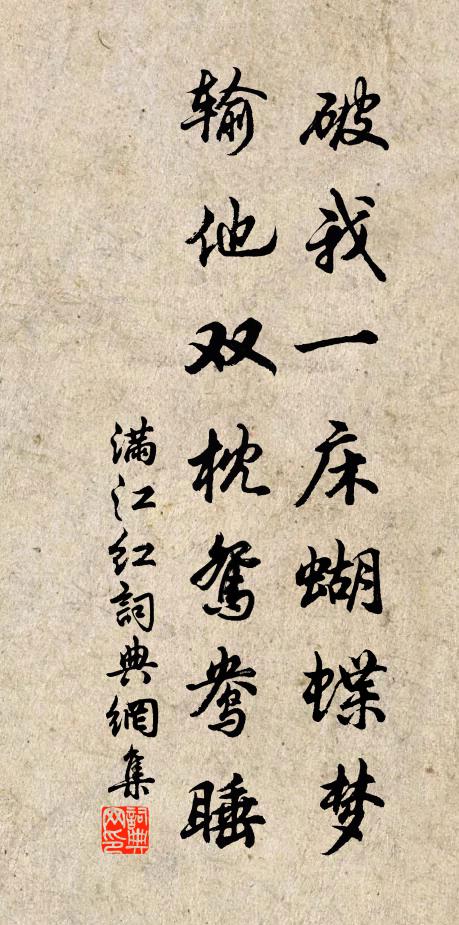 破我一床蝴蝶梦
输他双枕鸳鸯睡
满江红詞典網集
詞典
网印